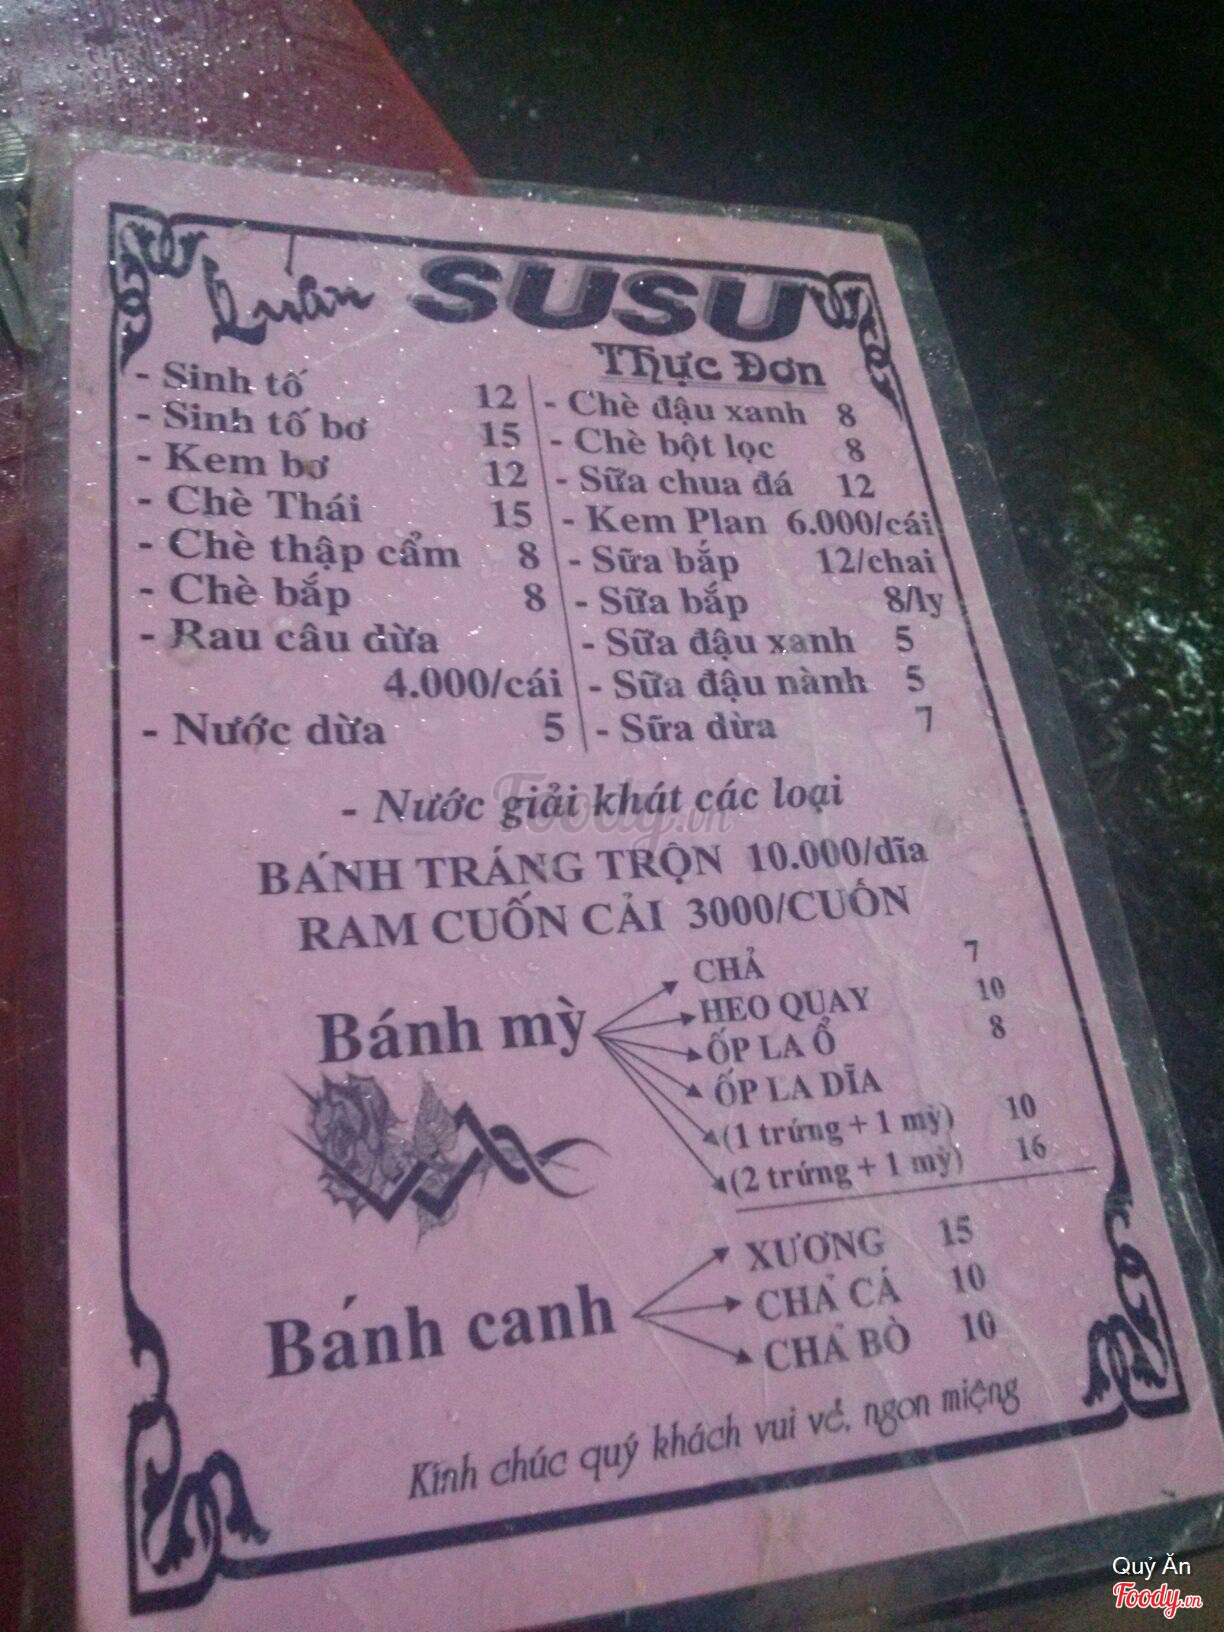 Quán SUSU
Thực Đơn
- Sinh tố 12
- Sinh tố bơ 15
- Kem bơ 12
- Chè Thái 15
- Chè thập cẩm 8
- Chè bắp 8
- Rau câu dừa
4.000/cái
- Nước dừa 5
- Chè đậu xanh 8
- Chè bột lọc 8
- Sữa chua đá 12
- Kem Plan 6.000/cái
- Sữa bắp 12/chai
- Sữa bắp 8/ly
- Sữa đậu xanh 5
- Sữa đậu nành 5
- Sữa dừa 7
- Nước giải khát các loại
BÁNH TRÁNG TRỘN 10.000/dĩa
RAM CUỐN CẢI 3000/CUỐN
Bánh mỳ
CHẢ 7
HEO QUAY 10
ỐP LA Ổ 8
ỐP LA DĨA
(1 trứng + 1 mỳ) 10
(2 trứng + 1 mỳ) 16
Bánh canh
XƯƠNG 15
CHẢ CÁ 10
CHẢ BÒ 10
Kính chúc quý khách vui vẻ, ngon miệng
Foody.vn
Quỷ Ăn
Foody.vn